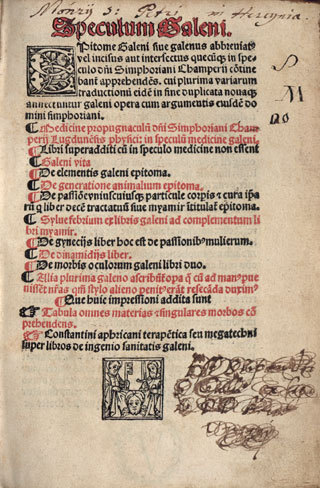 Monrij S: Petri in Hercynia.
Speculum Galeni.
Epitome Galeni siue galenus abbreuiatꝰ
vel incisus aut intersectus quecūqꝫ in spe
culo dñi Simphoriani Champerij cōtine
bant̄ apprehendēs. cū plurima variarum
traductionū eidē in fine duplicata nouaqꝫ
annectuntur galeni opera cum argumentis eiusdē do
mini simphoriani.
¶ Medicine propugnaculū dñi Simphoriani Cham
perij Lugdunēsis phisici: in speculū medicine galeni.
¶ Libri superadditi cū in speculo medicine non essent
¶ Galeni vita
¶ De elementis galeni epitoma.
¶ De generatione animalium epitoma.
¶ De passiōe vniuscuiusqꝫ particule corpis ⁊ cura ipa
rū q̄ liber decē tractatuū siue myamir ītitulat̄ epitoma.
¶ Sylue febrium ex libris galeni ad complementum li
bri myamir.
¶ De gynecijs liber hoc est de passionibꝰ mulierum.
¶ De dinamidijs liber.
¶ De morbis oculorum galeni libri duo.
¶ Alia plurima galeno ascribūt̄
Que huic impressioni addita sunt
¶ Tabula omnes materias ⁊ singulares morbos cō
prehendens.
¶ Constantini aphricani terapētica seu megatechni
super libros de ingenio sanitatis galeni.